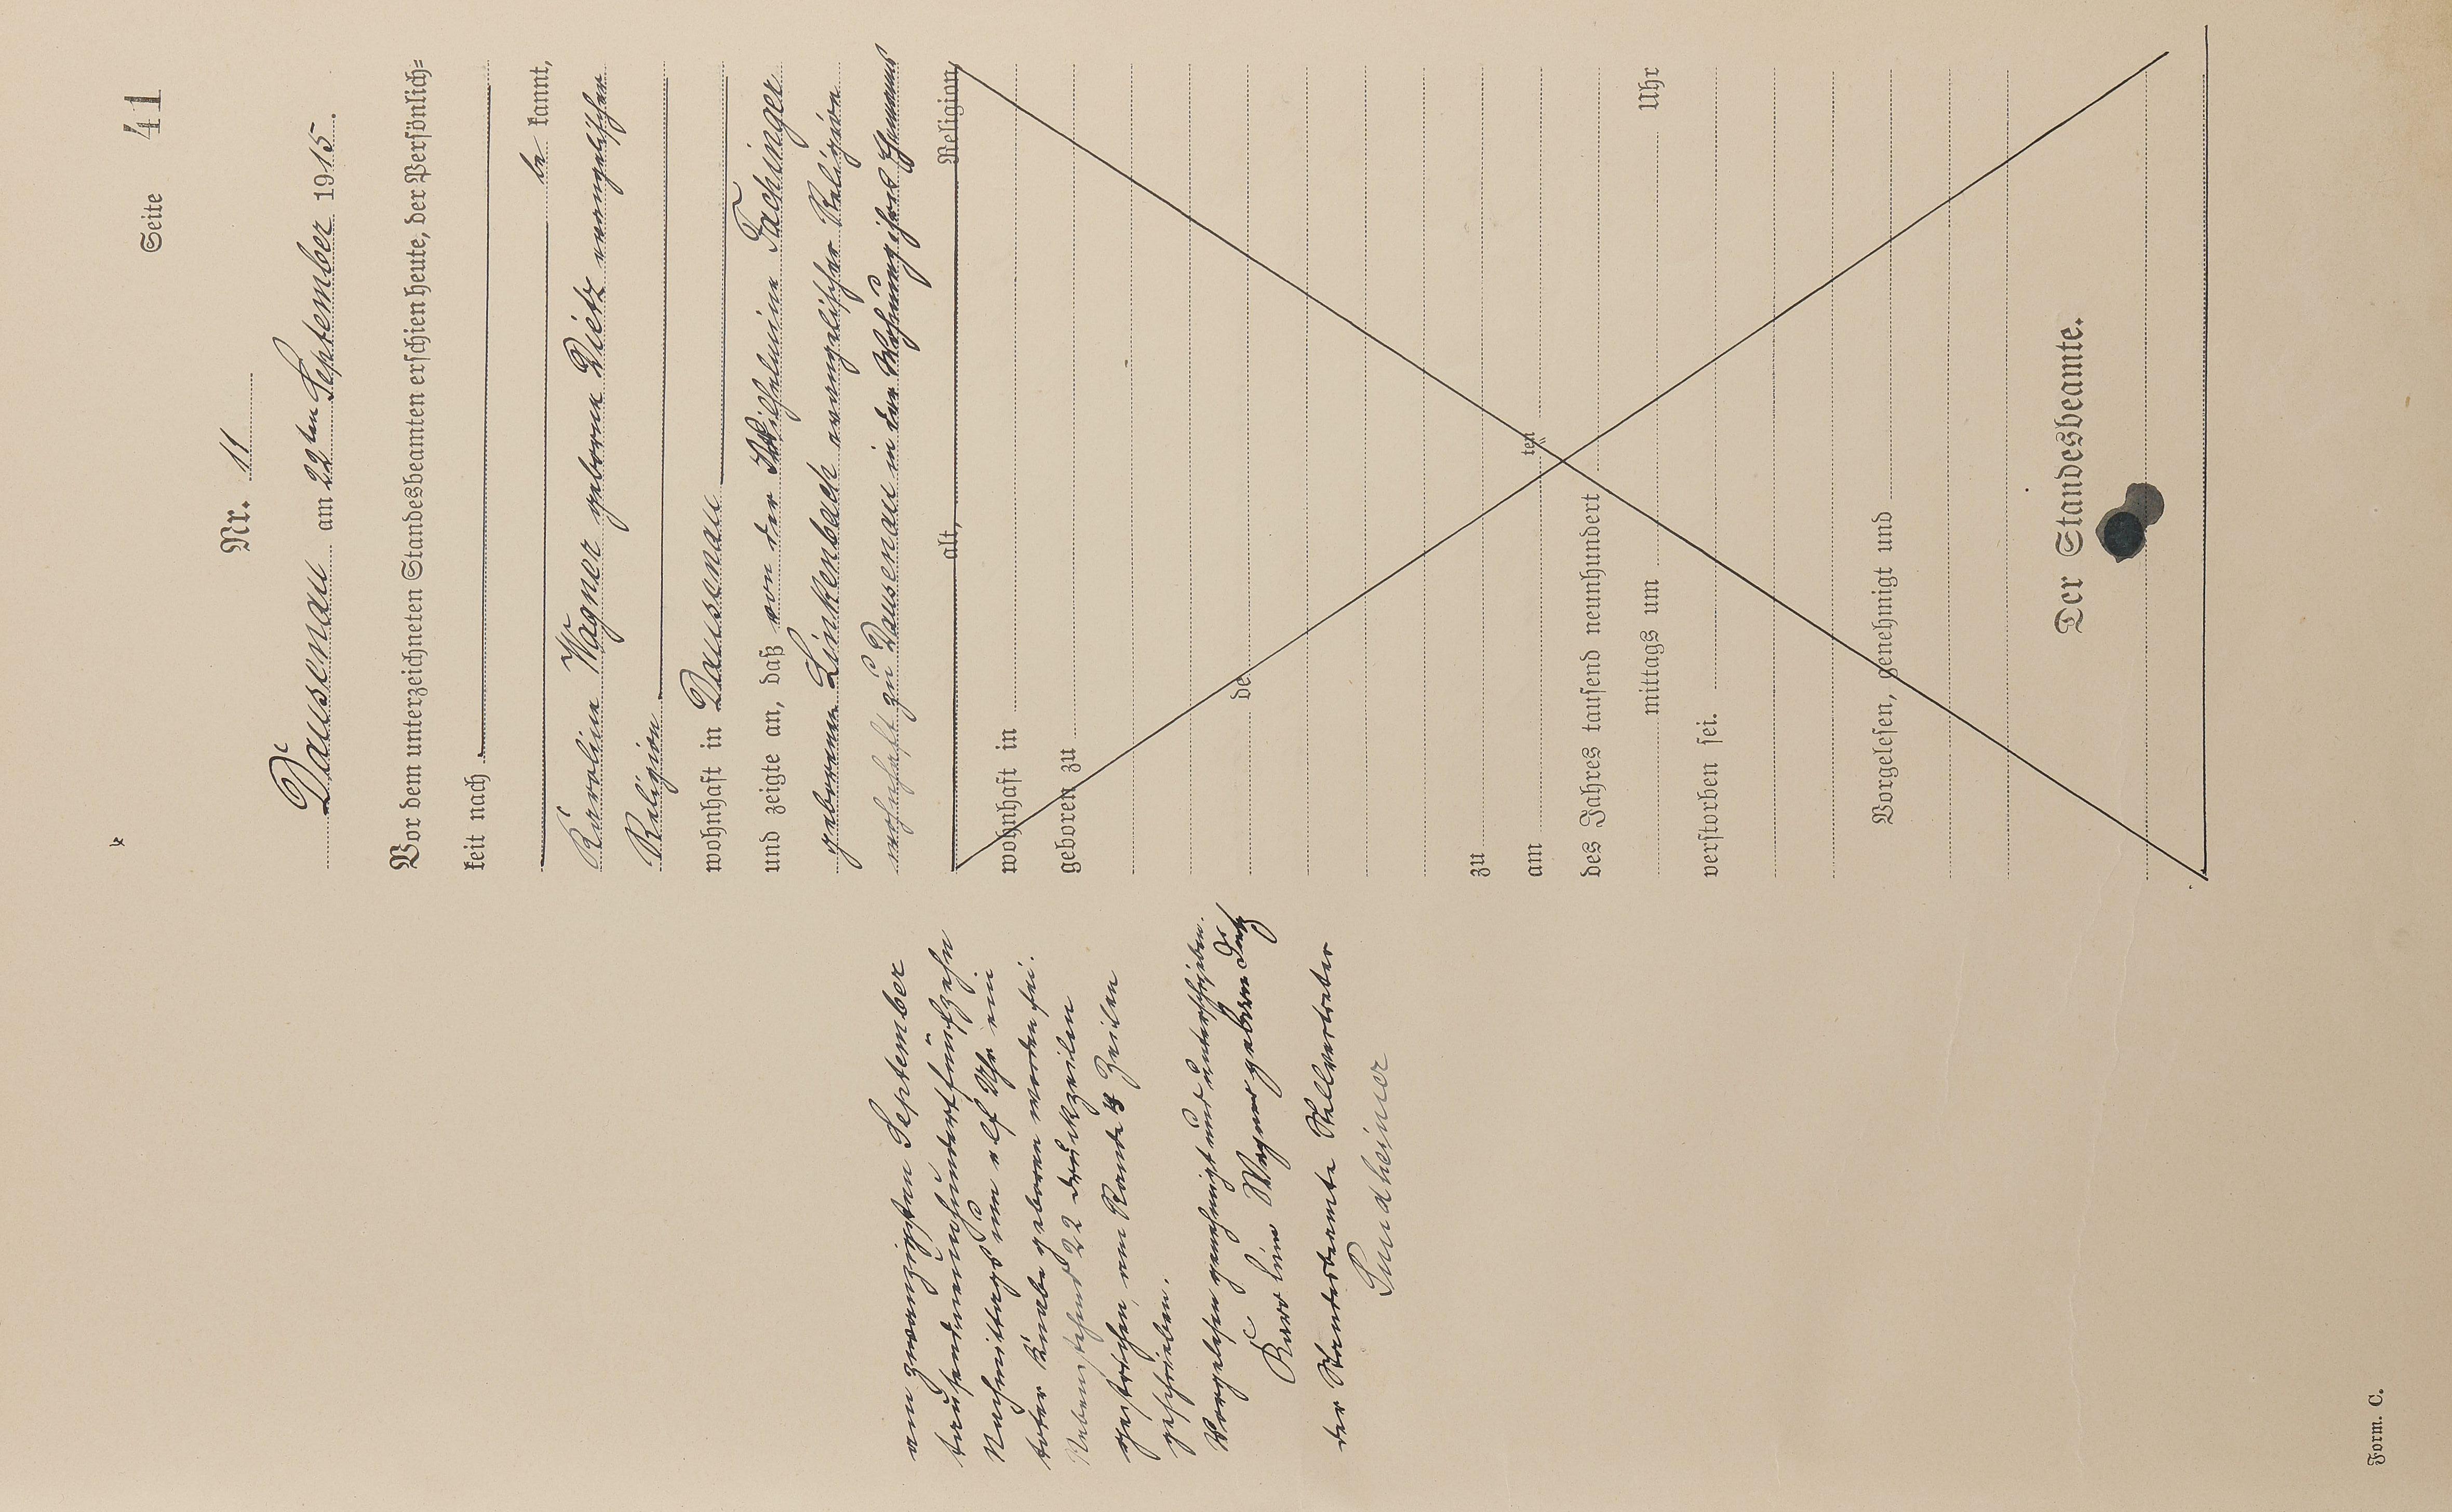 Seite 41
Nr. 11
Dausenau am 22ten September 1915.
Vor dem unterzeichneten Standesbeamten erschien heute, der Persönlich-
keit nach
be kannt,
Karoline Wagner geborene Dietz evangelischer
Religion
wohnhaft in Dausenau
und zeigte an, daß von der Wilhelmine Fachinger
geborenen Linkenbach evangelischer Religion
wohnhaft zu Dausenau in der Wohnung ihres Ehemanns
alt, Religion,
wohnhaft in
geboren zu
de
zu
am ten
des Jahres tausend neunhundert
mittags um Uhr
verstorben sei.
Vorgelesen, genehmigt und
Der Standesbeamte.
am zwanzigsten September
tausendneunhundertfünfzehn
Nachmittags um elf Uhr ein
toter Knabe geboren worden sei.
Nebenstehend 22 Druckzeilen
gestrichen, am Rande 4 Zeilen
geschrieben.
Vorgelesen genehmigt und unterschrieben.
Karoline Wagner geborene Dietz
der Standesbeamte Stellvertreter
Sundheimer
Form. C.